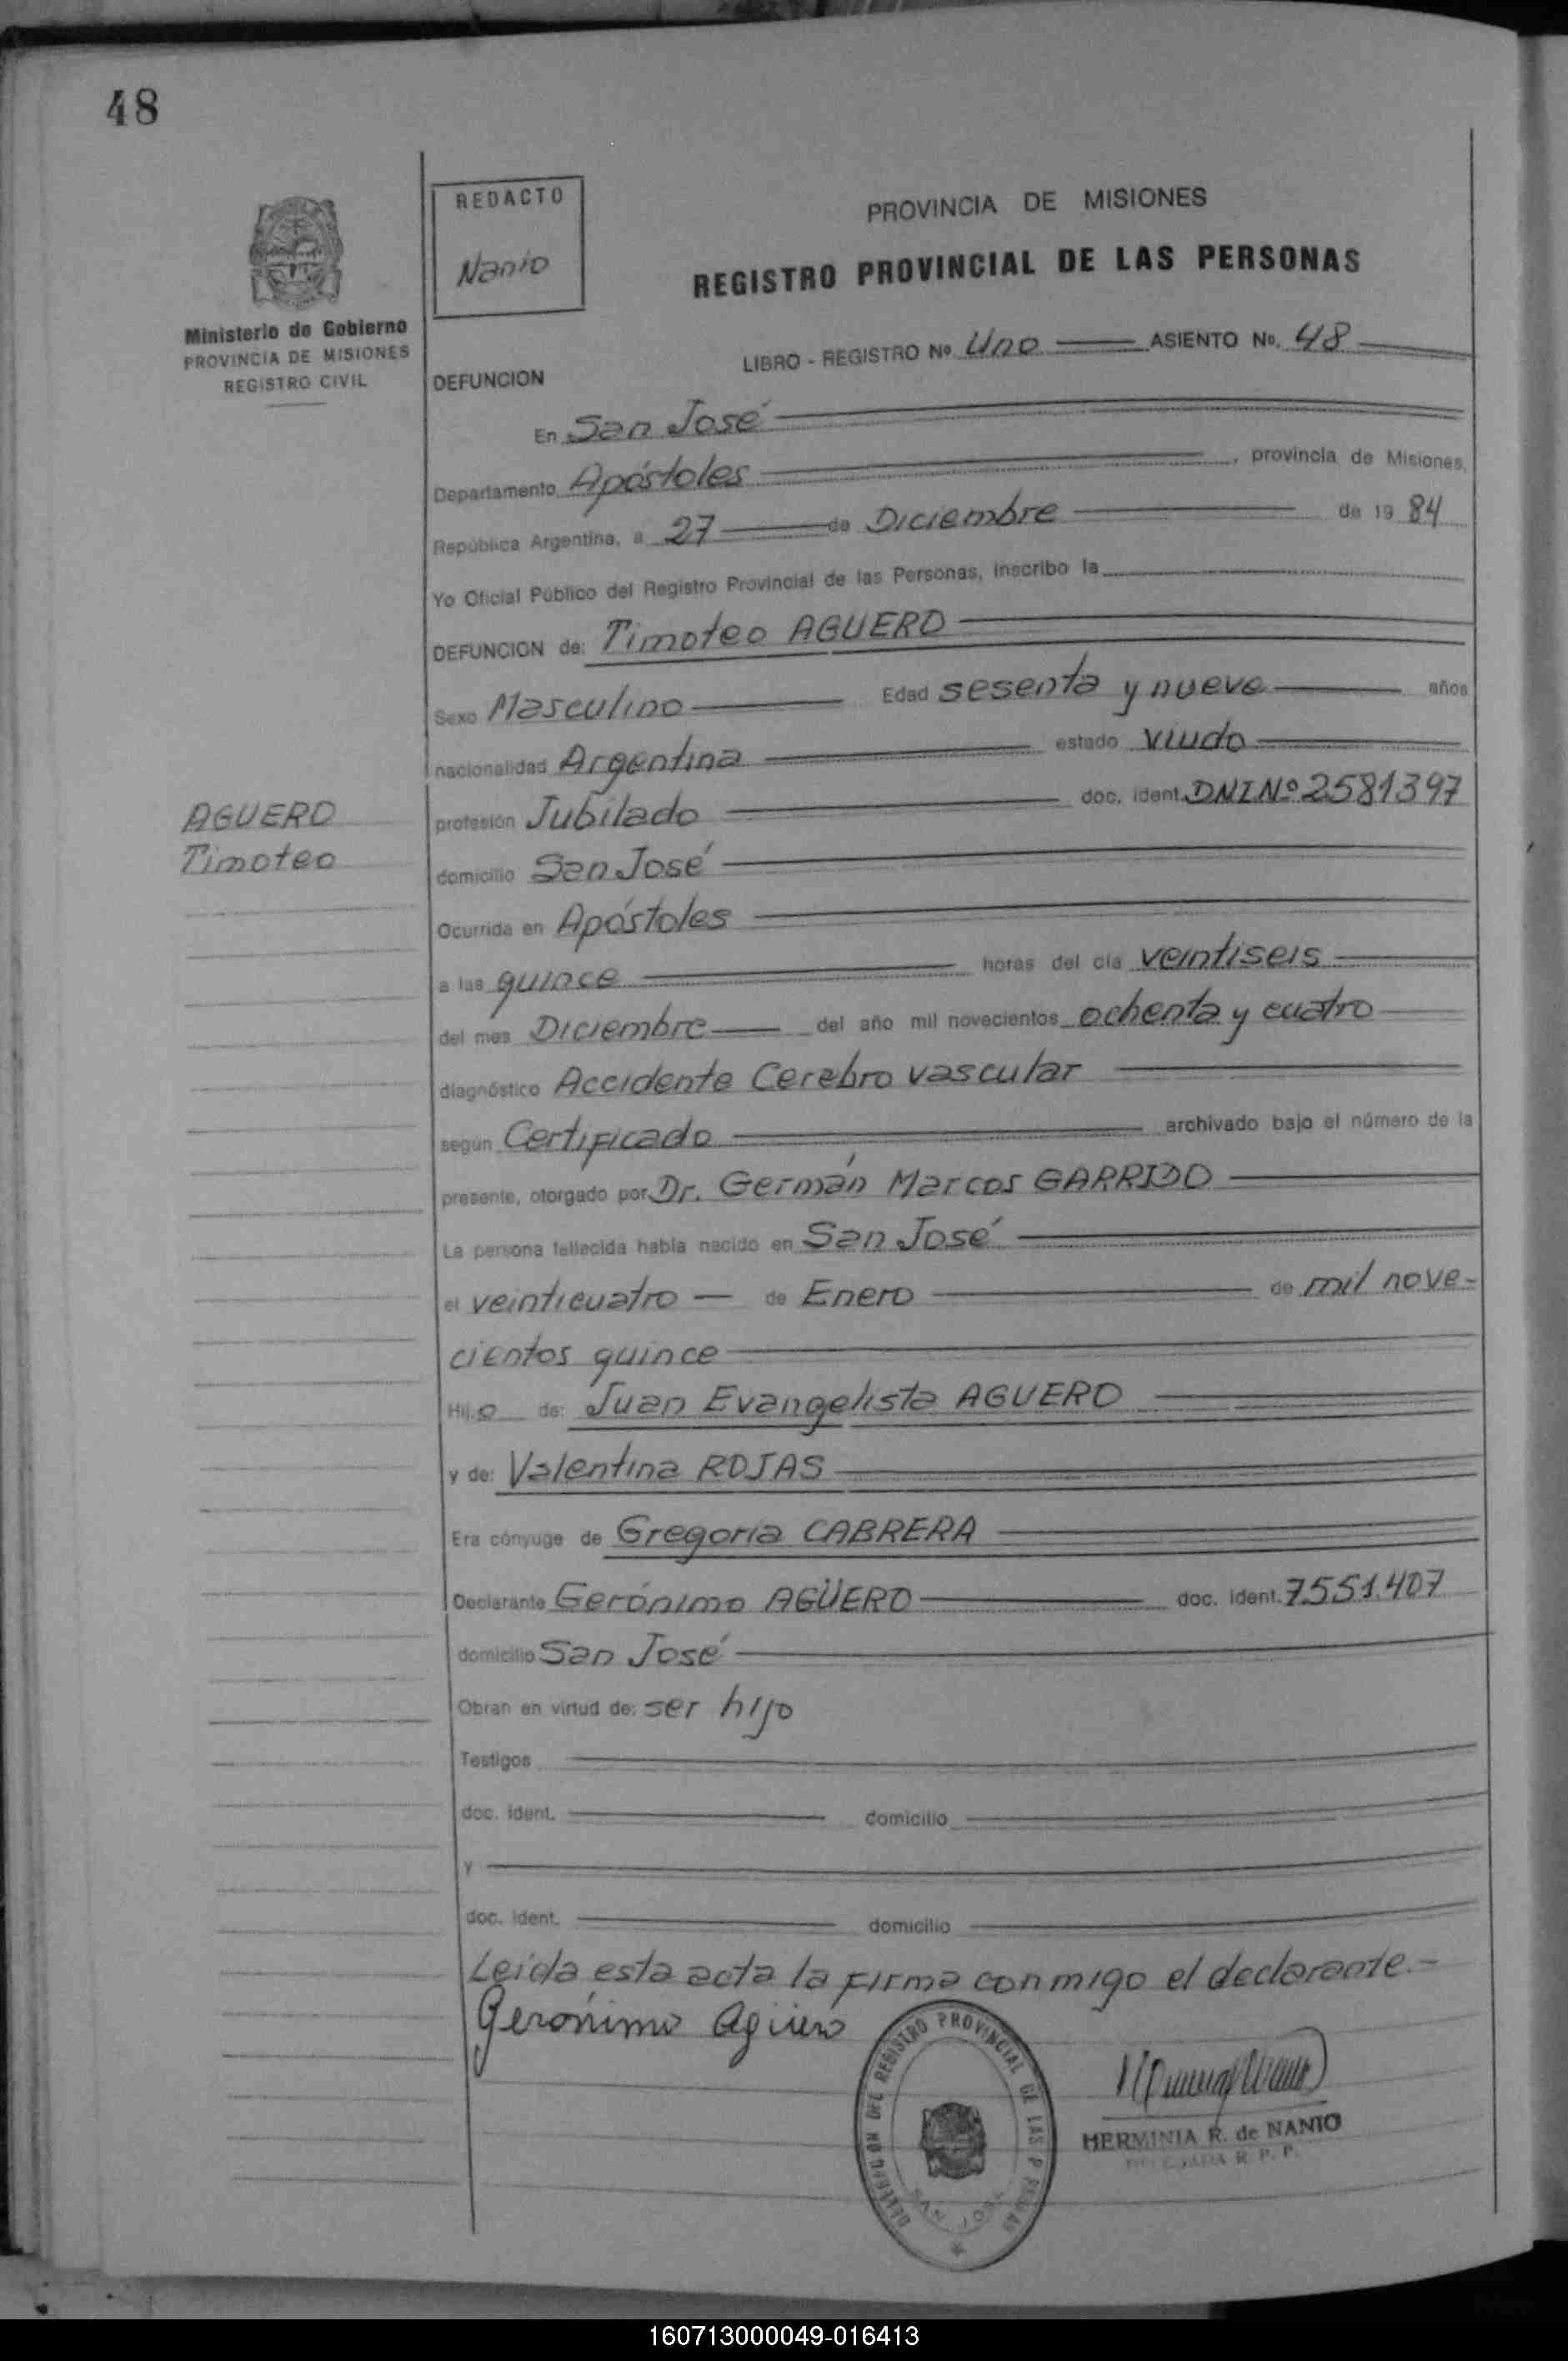 48
REDACTO
Nanio
PROVINCIA DE MISIONES
REGISTRO PROVINCIAL DE LAS PERSONAS
Ministerio de Gobierno
PROVINCIA DE MISIONES
REGISTRO CIVIL
LIBRO - REGISTRO Nº Uno ASIENTO No. 48
DEFUNCION
En San José
Departamento Apóstoles, provincia de Misiones,
República Argentina, a 27 de Diciembre de 19 84
Yo Oficial Público del Registro Provincial de las Personas, inscribo la
DEFUNCION de: Timoteo AGUERO
Sexo Masculino Edad sesenta y nueve años
nacionalidad Argentina estado viudo
AGUERO
Timoteo
profesión Jubilado doc. ident. DNI Nº 2581397
domicilio San José
Ocurrida en Apóstoles
a las quince horas del día veintiseis
del mes Diciembre del año mil novecientos ochenta y cuatro
diagnóstico Accidente Cerebro vascular
según Certificado archivado bajo el número de la
presente, otorgado por Dr. Germán Marcos GARRIDO
La persona fallecida había nacido en San José
el veinticuatro — de Enero de mil nove-
cientos quince
Hijo de: Juan Evangelista AGUERO
y de: Valentina ROJAS
Era cónyuge de Gregoria CABRERA
Declarante Gerónimo AGÜERO doc. ident. 7.551.407
domicilio San José
Obran en virtud de: ser hijo
Testigos
doc. ident. domicilio
y
doc. ident. domicilio
Leída esta acta la firma conmigo el declarante.-
Gerónimo Agüero
DELEGACION DEL REGISTRO PROVINCIAL DE LAS PERSONAS
SAN JOSE
HERMINIA R. de NANIO
DELEGADA R. P. P.
160713000049-016413